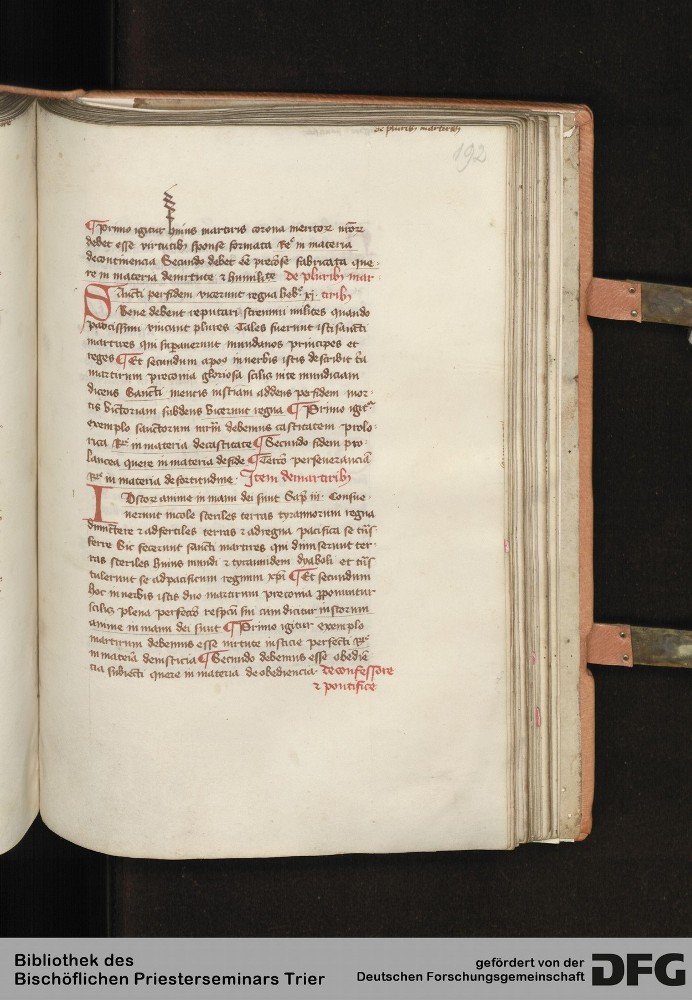 de pluribꝫ martiribꝫ
192
¶ Primo igitur huius martiris corona meritorie
debet esse virtutibꝫ sponse formata Re͛ in materia
de continencia Secundo debet fabricata que
re in materia de virtute ⁊ humilitate de pluribꝫ mar
Sancti per fidem vicerunt regna heb͛ xj tiribꝫ
Bene debent reputari strennui milites quando
paucissimi vincunt plures Tales fuerunt isti sancti
martires qui superauerunt mundanos principes et
reges ¶ Et secundum in verbis istis describit
martirum preconia gloriosa scilicet
dicens Sancti mentis addens per fidem
victoriam subdens vicerunt regna ¶ Primo igitur
exemplo sanctorum debemus castitatem
Re͛ in materia de castitate ¶ Secundo fidem pro
lancea quere in materia de fide ¶ Tercio perseueranciam
Re͛ in materia de fortitudine Item de martiribꝫ
Iustorum anime in manu dei sunt Sap iij Consue
uerunt incole steriles terras tyrannorum regna
dimittere ⁊ ad fertiles terras ⁊ ad regna pacifica se trans
ferre Sic fecerunt sancti martires qui dimiserunt ter
ras steriles huius mundi ⁊ tyrannidem dyaboli et trans
tulerunt se ad pacificum regnum xpi ¶ Et secundum
hoc in verbis istis duo martirum preconia proponuntur
scilicet plena perfectio cum dicitur iustorum
anime in manu dei sunt ¶ Primo igitur exemplo
martirum debemus esse virtute iusticie perfecti Re͛
in materia de iusticia ¶ Secundo debemus esse obedien
cia subiecti quere in materia de obediencia de confessore
⁊ pontifice
Bibliothek des
Bischöflichen Priesterseminars Trier
gefördert von der
Deutschen Forschungsgemeinschaft
DFG